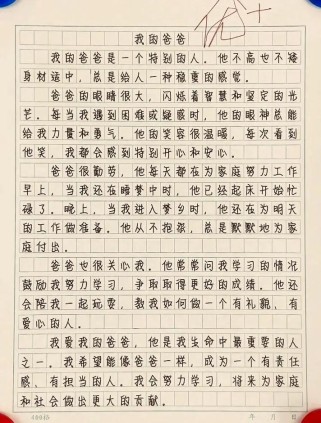 优+
我的爸爸
我的爸爸是一个特别的人。他不高也不矮
身材适中，总是给人一种稳重的感觉。
爸爸的眼睛很大，闪烁着智慧和坚定的光
芒。每当我遇到困难或疑惑时，他的眼神总能
给我力量和勇气。他的笑容很温暖，每次看到
他笑，我都会感到特别开心和安心。
爸爸很勤劳，他每天都在为家庭努力工作
早上，当我还在睡梦中时，他已经起床开始忙
碌了。晚上，当我进入梦乡时，他还在为明天
的工作做准备。他从不抱怨，总是默默地为家
庭付出。
爸爸也很关心我。他常常问我学习的情况
鼓励我努力学习，争取取得更好的成绩。他还
会陪我一起玩耍，教我如何做一个有礼貌，有
爱心的人。
我爱我的爸爸，他是我生命中最重要的人
之一。我希望能像爸爸一样，成为一个有责任
感，有担当的人。我会努力学习，将来为家庭
和社会做出更大的贡献。
年 月 日